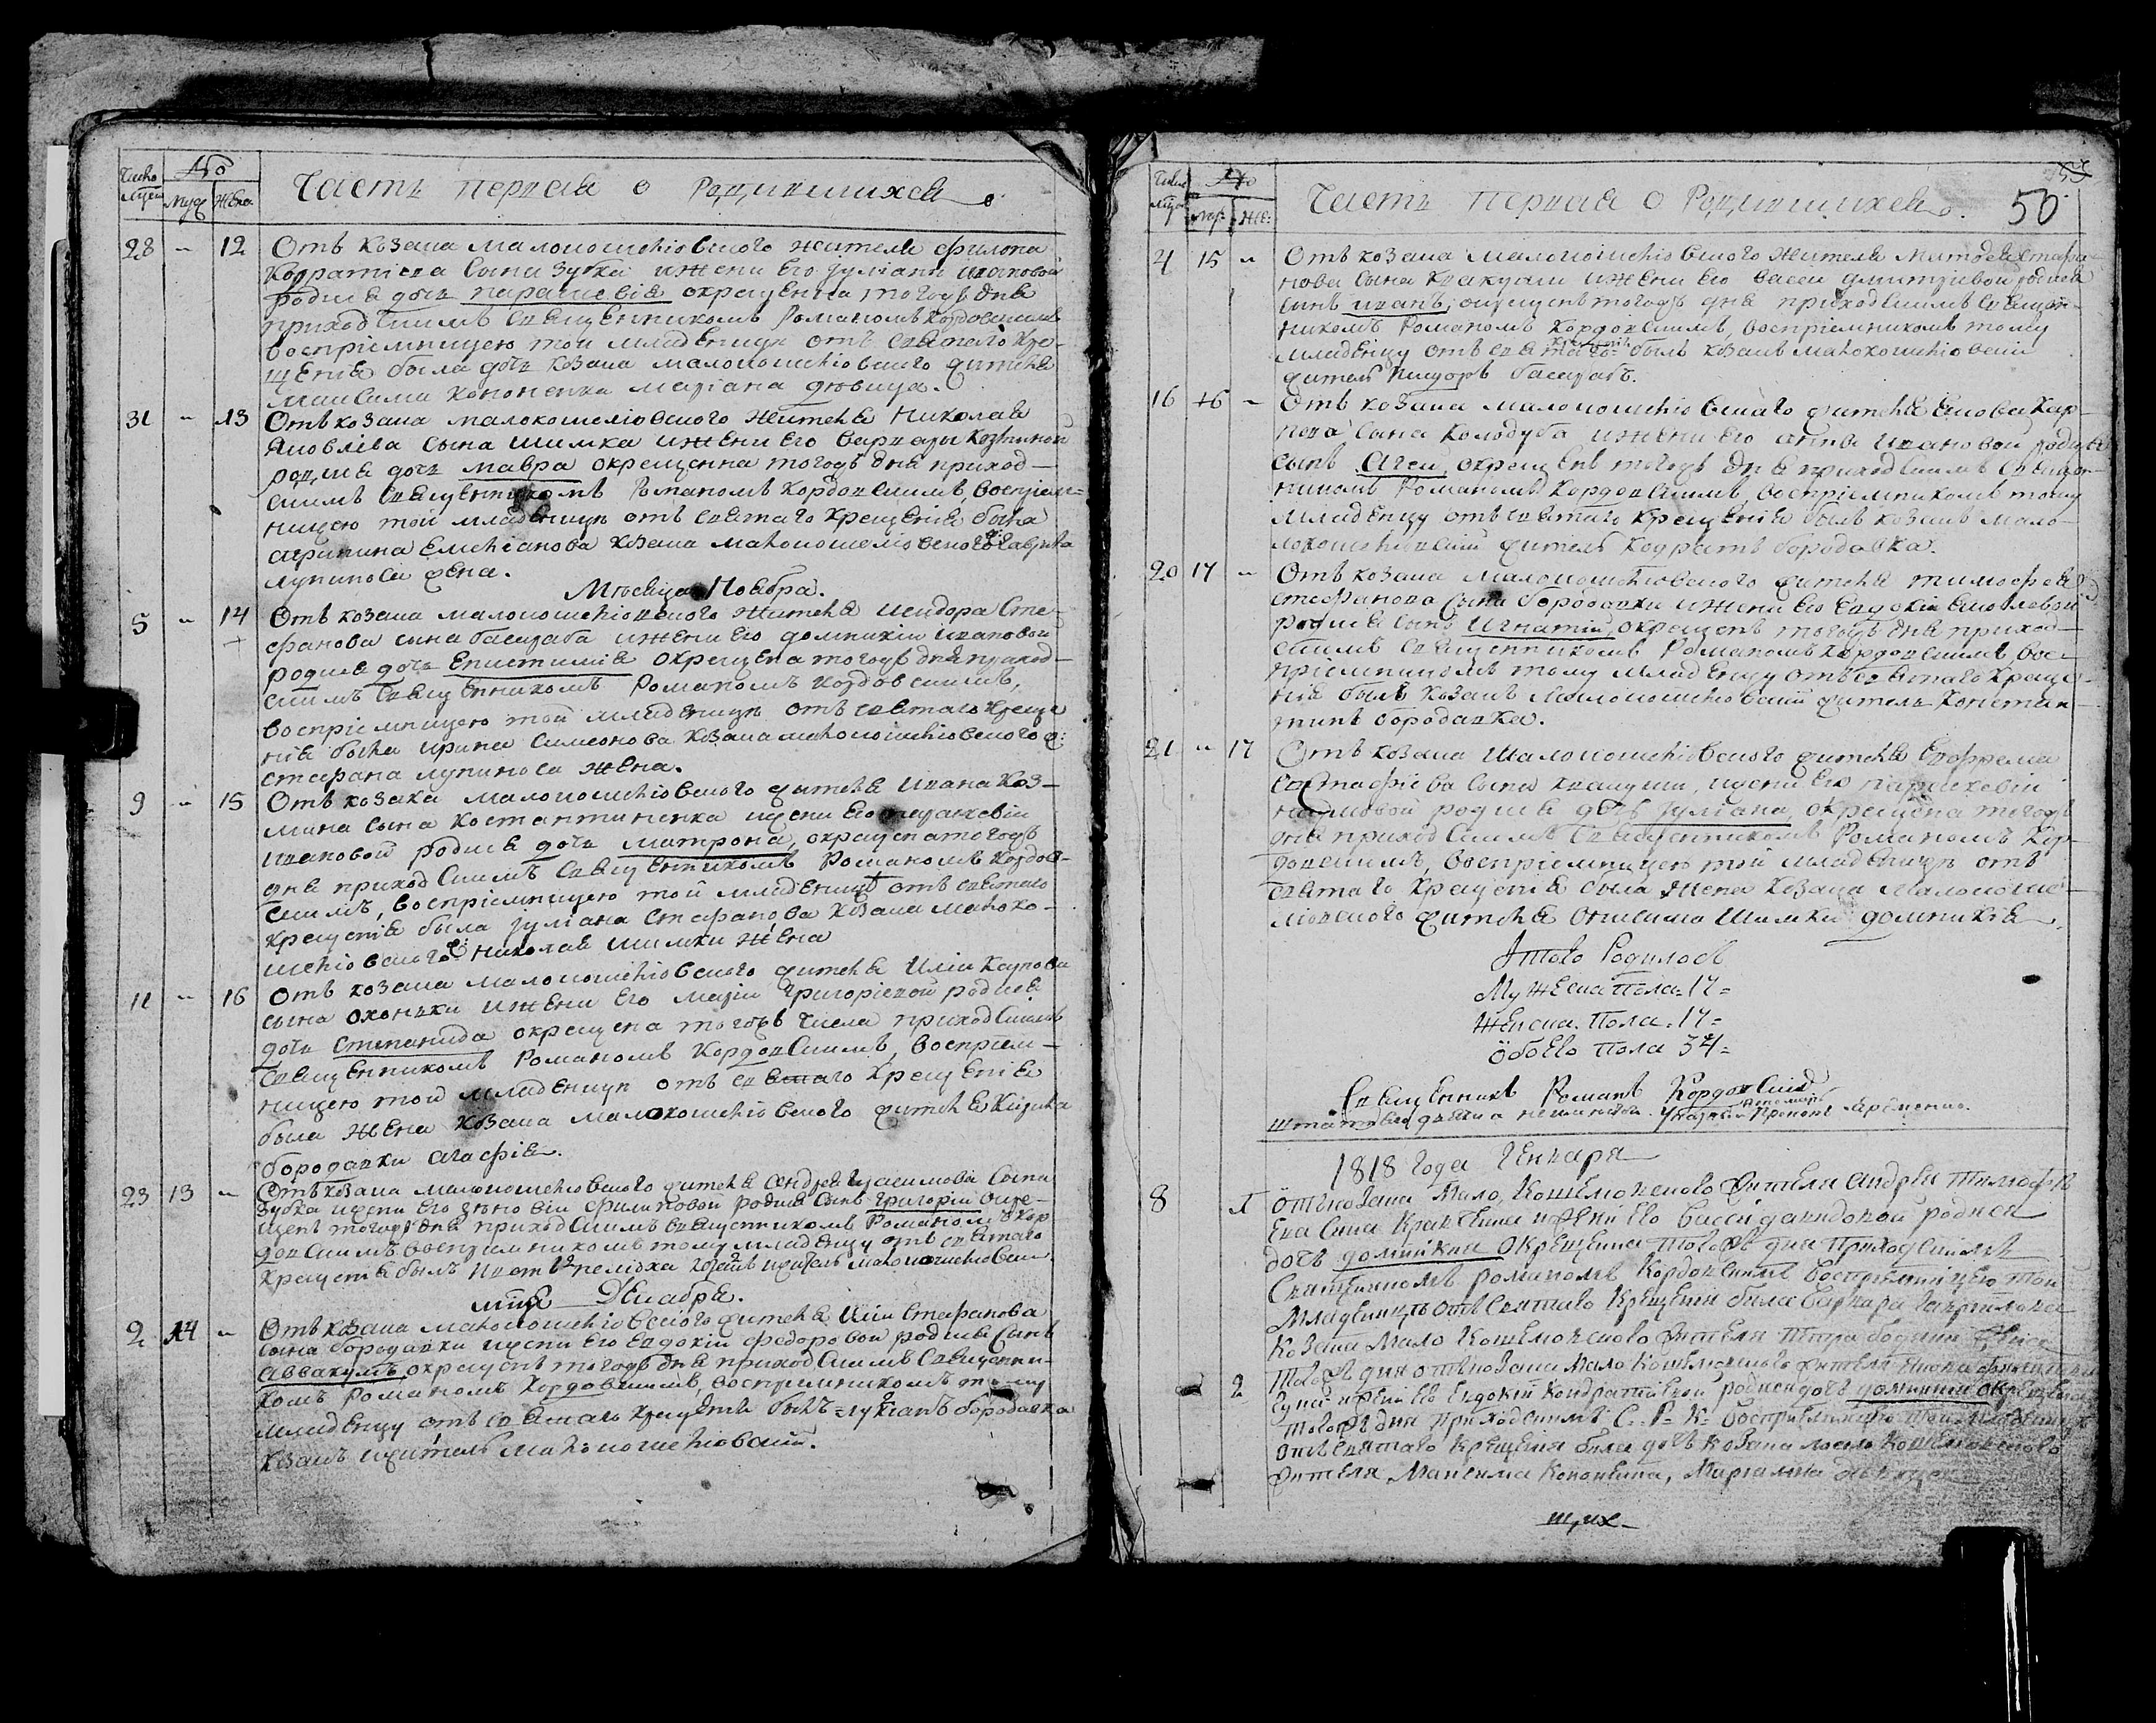 Число
Муж
Жен
Часть первая о Родившихся
28 - 12 Отъ козака малокошелювского жителя Филона
Кодратіева сына Зубка и жени его Іуліани Ивановой
родися дочь Параскевія окрещенна того дня
приходскимъ священникомъ Романомъ Кордовскимъ
воспріемницею той младеницы отъ святаго кре-
щенія была дочь козака малокошелювского жителя
Максима Кононенка Маріана дѣвица.
31 - 13 Отъ козака малокошелювского жителя Николая
Яковлева сына Шимка и жени его Варвары
родися дочь Мавра окрещенна тогодъ дня приход-
скимъ священникомъ Романомъ Кордовскимъ, воспріем-
ницею той младеницы отъ святаго крещенія была
Агрипина Емеліанова козака малокошелювского ж: Гаврила
Лупиноса жена.
Мѣсяца Ноября.
5 - 14 Отъ козака малокошелювского жителя Исидора Сте-
фанова сына Басараба и жени его Домникіи Ивановой
родися дочь Епистимія окрещена тогодъ дня приход-
скимъ священникомъ Романомъ Кордовскимъ,
воспріемницею той младеницы отъ святаго креще
нія была Ирина Симеонова козака малокошелювского ж:
Стефана Лупиноса жена.
9 - 15 Отъ козака малокошелювского жителя Ивана Коз-
мина сына Костантиненка и жени его
Ивановой родися дочь Матрона, окрещена тогодъ
дня приходскимъ священникомъ Романомъ Кордов-
скимъ, воспріемницею той младеницы отъ святаго
крещенія была Іуліана Стефанова козака малоко-
шелювского ж: Николая Шимки жена
11 - 16 Отъ козака малокошелювского жителя Иліи Карпова
сына и жени его Маріи Григоріевой родися
дочь Степанида окрещена тогожъ числа приходскимъ
священникомъ Романомъ Кордовскимъ, воспріем-
ницею той младеницы отъ святаго крещенія
была жена козака малокошелювского жителя Кирила
Бородавки Агафія.
23 13 - Отъ козака малокошелювского жителя Андрея Герасимова сына
Зубка и жени его Филиповой родися сынъ Григорій окре-
щенъ тогодъ дня приходскимъ священникомъ Романомъ Кор
довскимъ воспріемникомъ тому младенцу отъ святаго
крещенія былъ козакъ и житель малокошелювский
мца Декабря.
2 14 - Отъ козака малокошелювского жителя Иліи Стефанова
сына Бородавки и жени его Евдокіи Федоровой родися сынъ
Аввакумъ окрещенъ тогодъ дня приходскимъ священни-
комъ Романомъ Кордовскимъ, воспріемникомъ тому
младенцу отъ святаго крещенія былъ Лукіанъ Бородавка
козакъ и житель малокошелювский.
Число
Муж
Же:
Часть первая о Родившихся.
50
4 15 - Отъ козака малокошелювского жителя Матфея Стефа-
нова сына Кракуши и жени его Васси Дмитріевой родися
сынъ Иванъ; окрещенъ тогодъ дня приходскимъ священ-
никомъ Романомъ Кордовскимъ, воспріемникомъ тому
младенцу отъ святаго былъ козакъ малокошелювский
житель Исидоръ Басарабъ.
16 16 - Отъ козака малокошелювского жителя Якова Кар-
пова сына Колодуба и жени его Анны Ивановой родися
сынъ Агей, окрещенъ тогодъ дня приходскимъ священ-
никомъ Романомъ Кордовскимъ, воспріемникомъ тому
младенцу отъ святаго крещенія былъ козакъ мало-
локошелювский житель Кодратъ Бородавка.
20 17 - Отъ козака малокошелювского жителя Тимофея
Стефанова сына Бородавки и жени его Евдокіи Яковлевой
родися сынъ Игнатій, окрещенъ тогодъ дня приход-
скимъ священникомъ Романомъ Кордовскимъ, вос-
пріемникомъ тому младенцу отъ святаго креще-
нія былъ козакъ малокошелювский житель Констан-
тинъ Бородавка.
21 - 17 Отъ козака малокошелювского жителя Ефрема
Евстафіева сына Кракуши, и жени его Параскевіи
Наумовой родися дочь Іуліана, окрещена тогодъ
дня приходскимъ священникомъ Романомъ Кор-
довскимъ, воспріемницею той младеницы отъ
святаго крещенія была жена козака малокоше-
лювского жителя Онисима Шимки Домникія.
Итого Родилось
Мужеска пола 17 =
Женска. Пола. 17 =
Обоего пола 34 =
Священникъ Романъ Кордовский
1818 Года Генваря
8 1 Отъ козака Мало, Кошелювского жителя Андрея Тимофѣ
ева сина и жени его Васси Давидовой родися
дочь Домникия окрещенна тогожъ дня приходскимъ
священникомъ Романомъ Кордовскимъ воспріемницею той
младеницѣ отъ святаго крещенія била Варвара Гавриилова
козака Мало Кошелювского жителя Петра жена
- 2 Тогожъ дня отъ козака Мало Кошелювского жителя
и жени его Евдокіи Кондратіевой родися дочь окрещена
тогожъ дня приходскимъ С. Р. К. воспріемницею той младеницѣ
отъ святаго крещенія била дочь козака мало Кошелювского
жителя, Максима Кононенка, Мариамна дѣвица